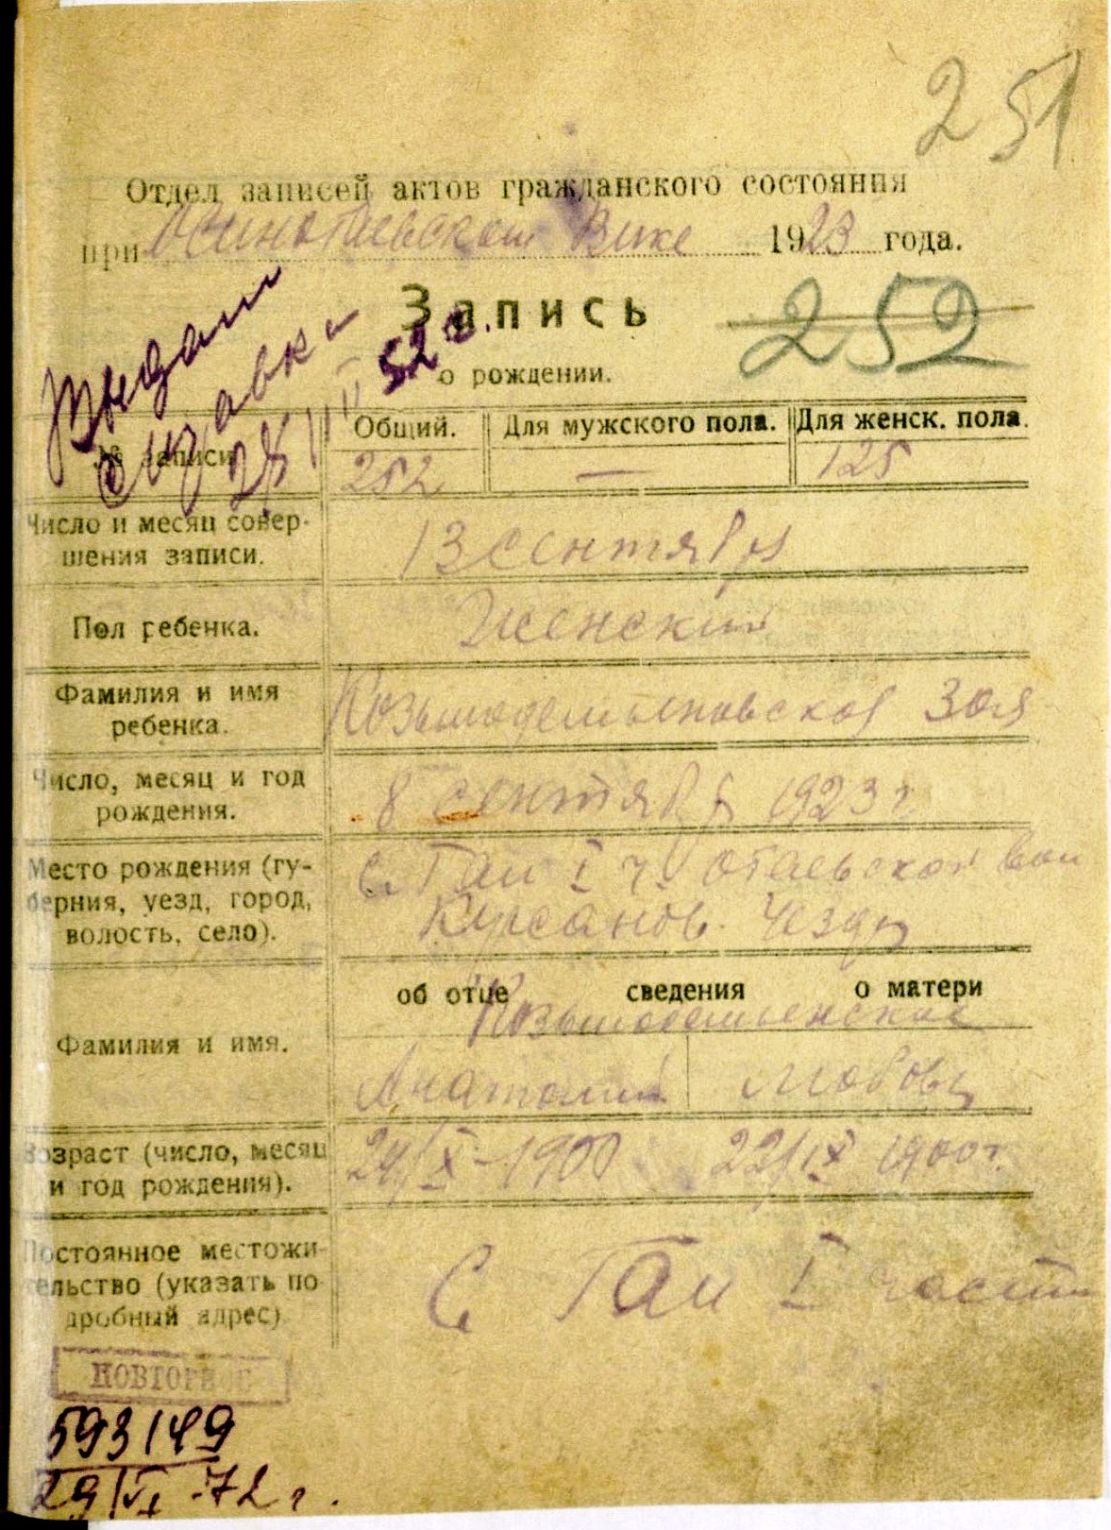 251
Отдел записей актов гражданского состояния
при Вике 1923 года.
Запись
252
о рождении.
Выдан
справка
28/II 52 г.
№ записи
Общий. Для мужского пола. Для женск. пола.
252 — 125
Число и месяц совер-
шения записи.
13 сентября
Пол ребенка.
Женский
Фамилия и имя
ребенка.
Зоя
Число, месяц и год
рождения.
8 сентября 1923 г
Место рождения (гу-
берния, уезд, город,
волость, село).
С. Гаи I ч.
Кирсанов. Уезда
об отце сведения о матери
Фамилия и имя.
Анатолий Любовь
Возраст (число, месяц
и год рождения).
/X-1900 22/IX 1900г.
Постоянное местожи-
тельство (указать по-
дробный адрес)
С. Гаи I части
ПОВТОРНОЕ
593149
29/VI-72 г.